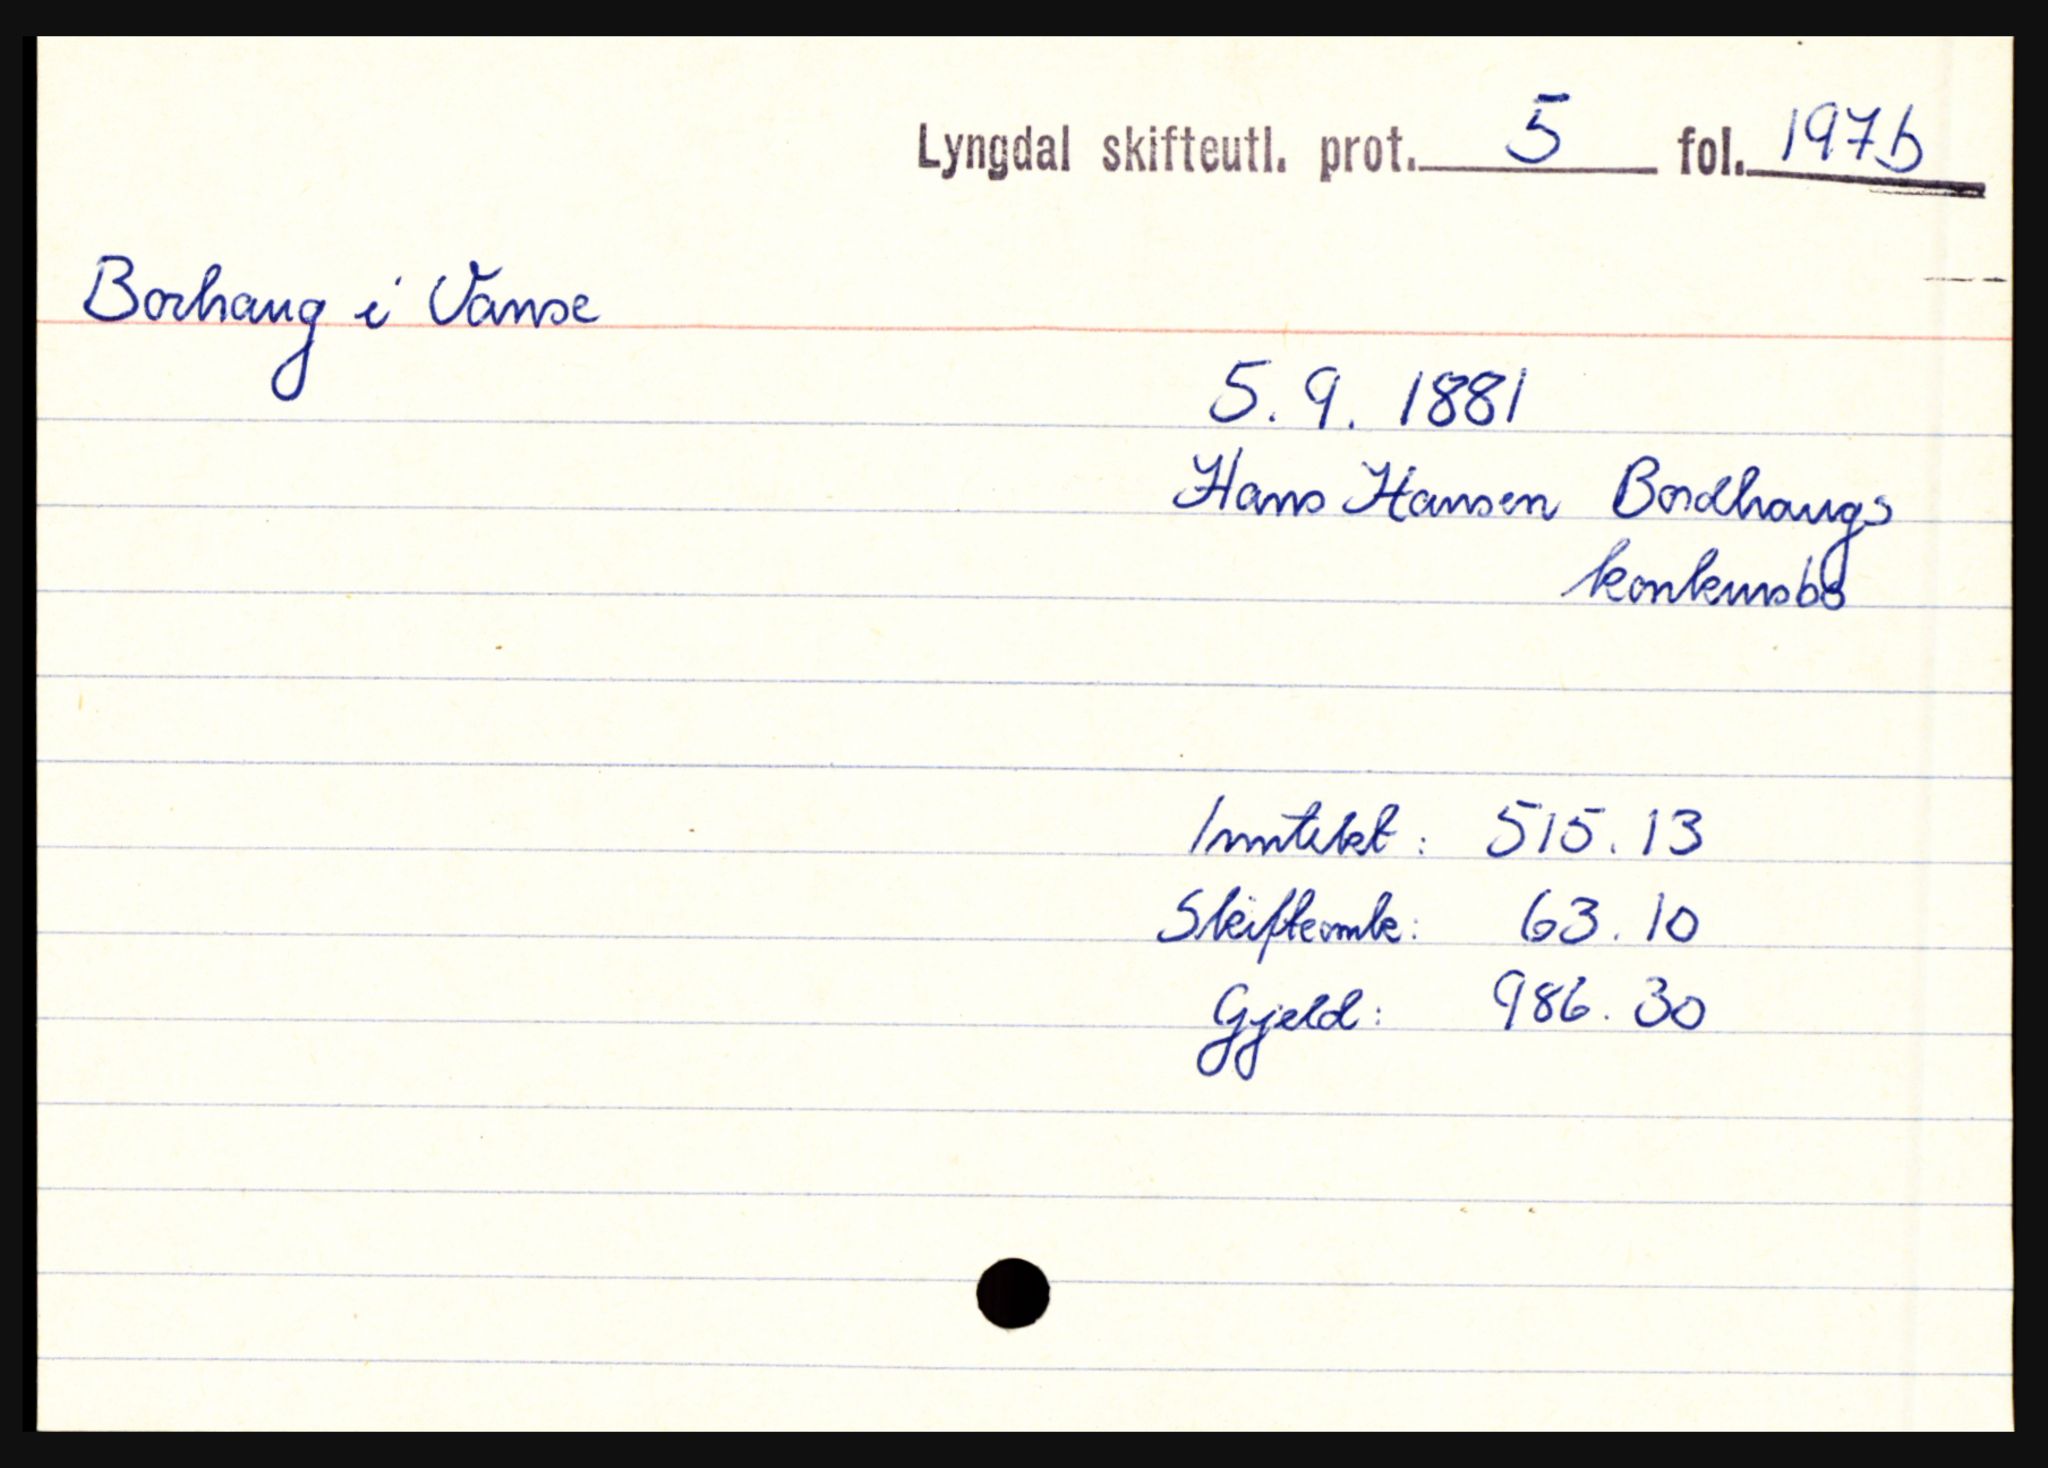 Lyngdal skifteutl. prot. 5 fol. 197b
Borhaug i Vanse
5. 9. 1881
Hans Hansen Bordhaugs
konkursbo
Inntekt: 515.13
Skifteomk: 63.10
Gjeld: 986.30